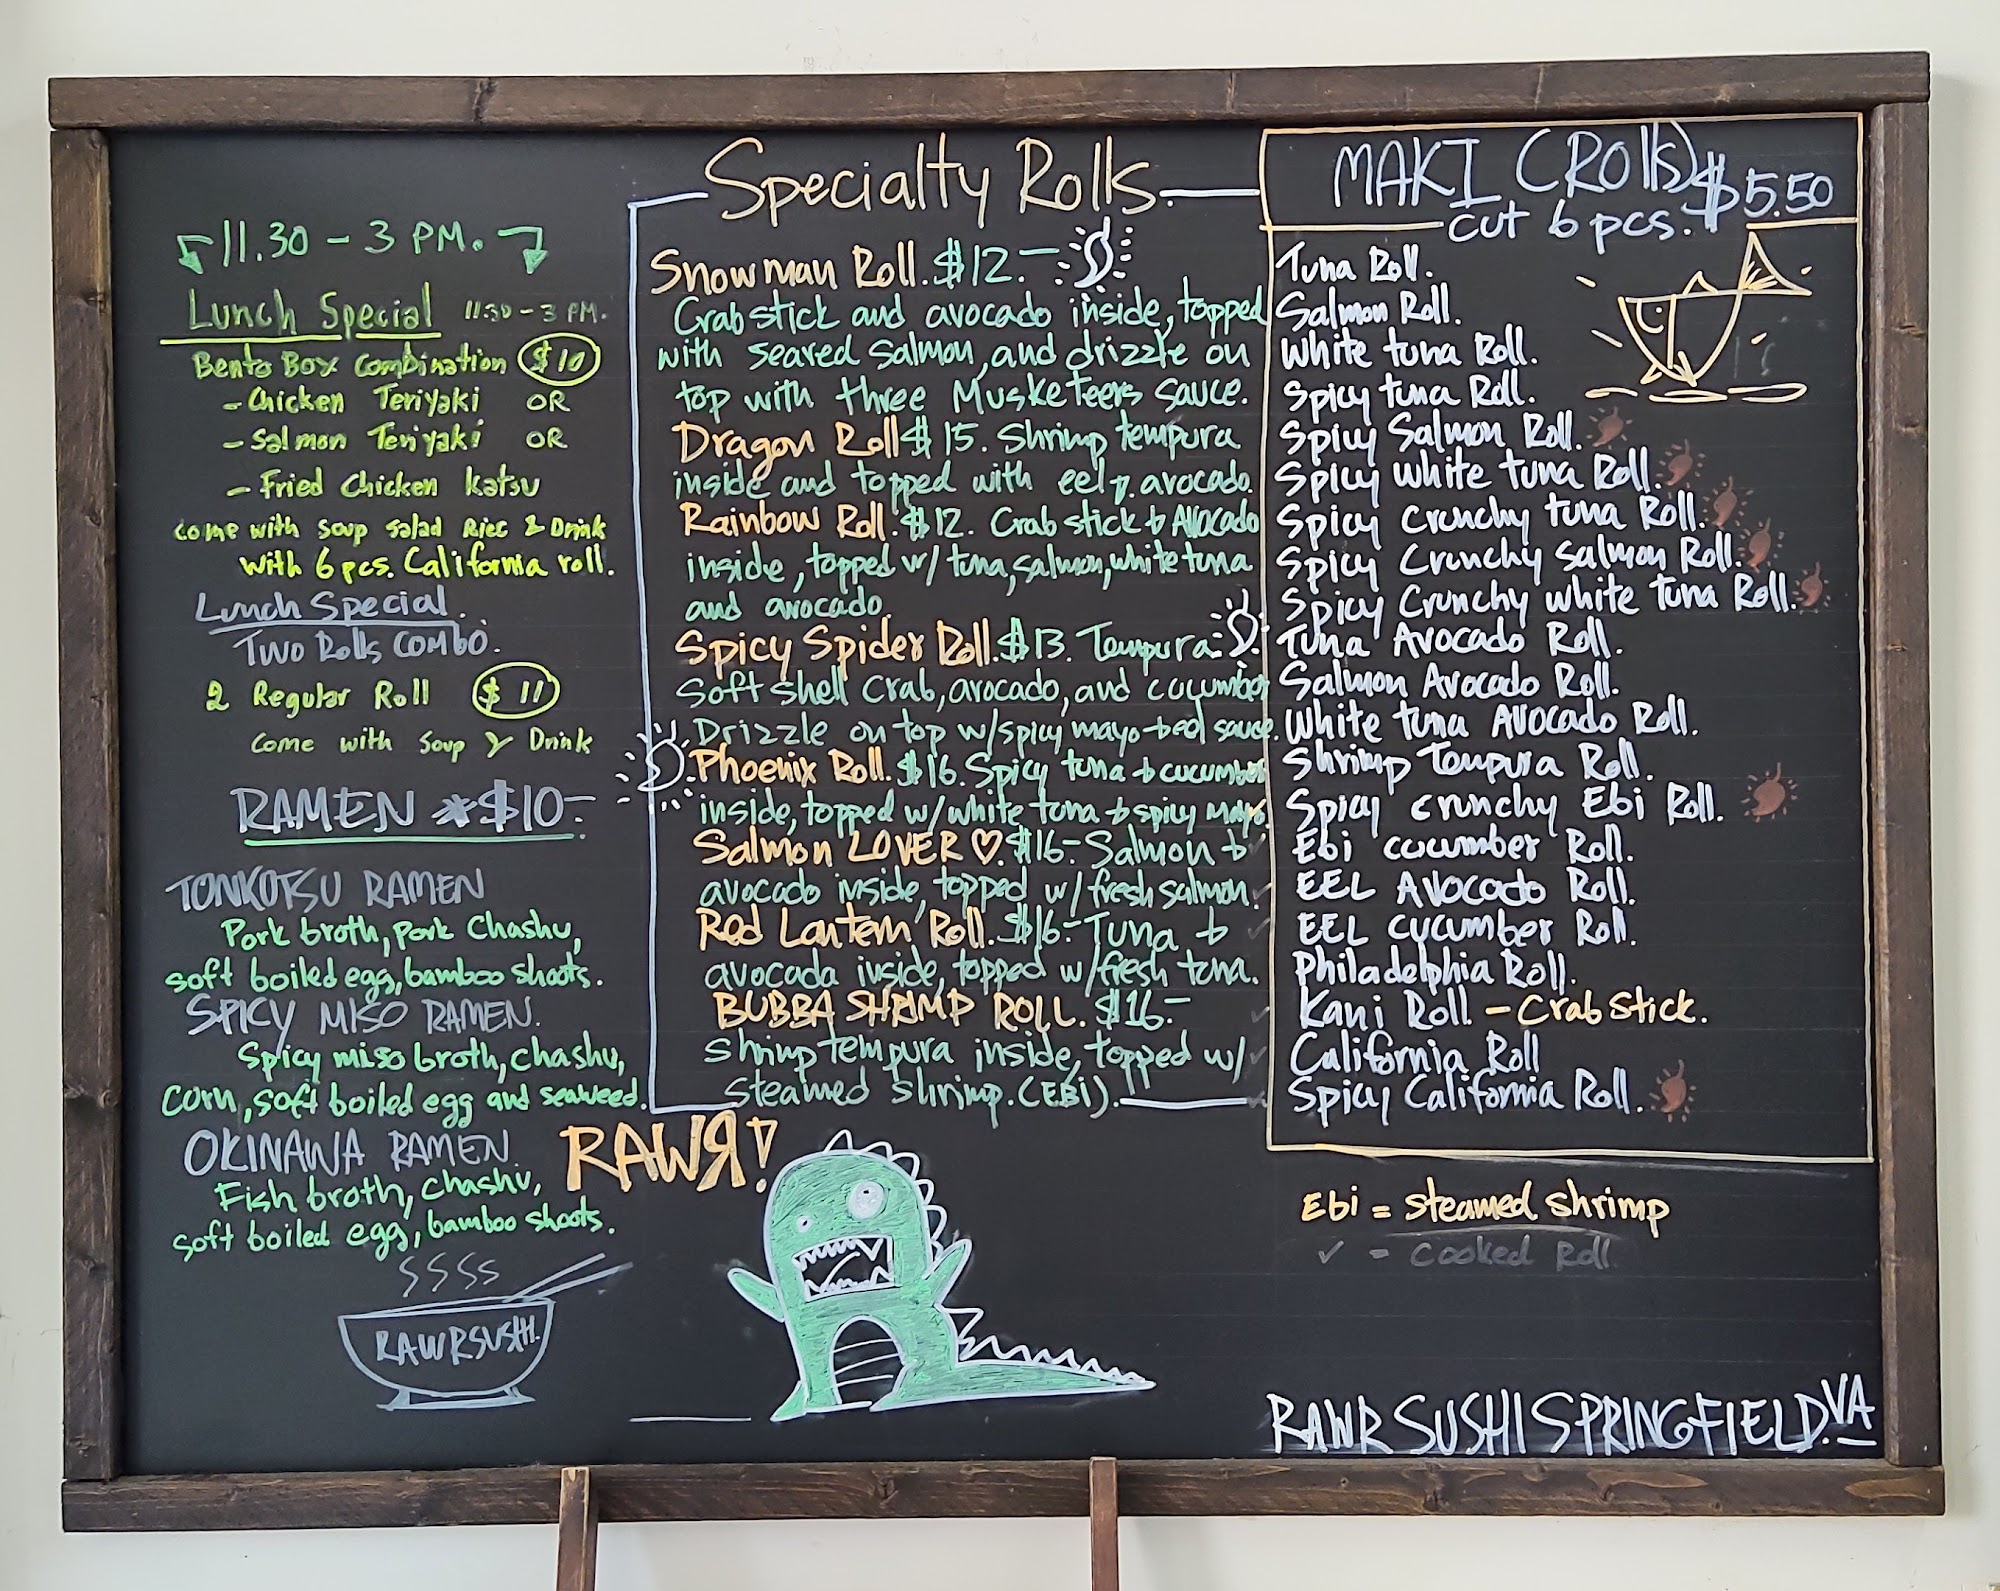 11.30 - 3 PM.
Lunch Special 11:30 - 3 PM.
Bento Box Combination $10
- Chicken Teriyaki OR
- Salmon Teriyaki OR
- Fried Chicken Katsu
come with Soup Salad Rice & Drink
with 6 pcs. California roll.
Lunch Special.
Two Rolls COMBO.
2 Regular Roll $11
Come with Soup & Drink
RAMEN *$10-
TONKOTSU RAMEN
Pork broth, pork Chashu,
soft boiled egg, bamboo shoots.
SPICY MISO RAMEN.
Spicy miso broth, chashu,
corn, soft boiled egg and seaweed.
OKINAWA RAMEN.
Fish broth, chashu,
soft boiled egg, bamboo shoots.
RAWRSUSHI.
Specialty Rolls.
Snowman Roll. $12.-
Crab stick and avocado inside, topped
with seared salmon, and drizzle on
top with three Musketeers sauce.
Dragon Roll $15. Shrimp tempura
inside and topped with eel, avocado.
Rainbow Roll. $12. Crab stick & Avocado
inside, topped w/ tuna, salmon, white tuna
and avocado.
Spicy Spider Roll. $13. Tempura
Soft shell crab, avocado, and cucumber
Drizzle on top w/spicy mayo & eel sauce.
Phoenix Roll. $16. Spicy tuna & cucumber
inside, topped w/ white tuna & spicy mayo.
Salmon LOVER ♡. $16.- Salmon &
avocado inside, topped w/ fresh salmon.
Red Lantern Roll. $16.- Tuna &
avocado inside, topped w/ fresh tuna.
BUBBA SHRIMP ROLL. $16.-
shrimp tempura inside, topped w/
steamed shrimp. (EBI).
RAWЯ!
MAKI (ROlls) $5.50
cut 6 pcs.
Tuna Roll.
Salmon Roll.
White tuna Roll.
Spicy tuna Roll.
Spicy Salmon Roll.
Spicy white tuna Roll.
Spicy Crunchy tuna Roll.
Spicy Crunchy salmon Roll.
Spicy Crunchy white tuna Roll.
Tuna Avocado Roll.
Salmon Avocado Roll.
White tuna Avocado Roll.
Shrimp Tempura Roll.
✓ Spicy crunchy Ebi Roll.
✓ Ebi cucumber Roll.
✓ EEL Avocado Roll.
✓ EEL cucumber Roll.
Philadelphia Roll.
✓ Kani Roll - Crab Stick.
✓ California Roll
✓ Spicy California Roll.
Ebi = steamed shrimp
✓ = Cooked Roll
RAWR SUSHI SPRINGFIELD. VA